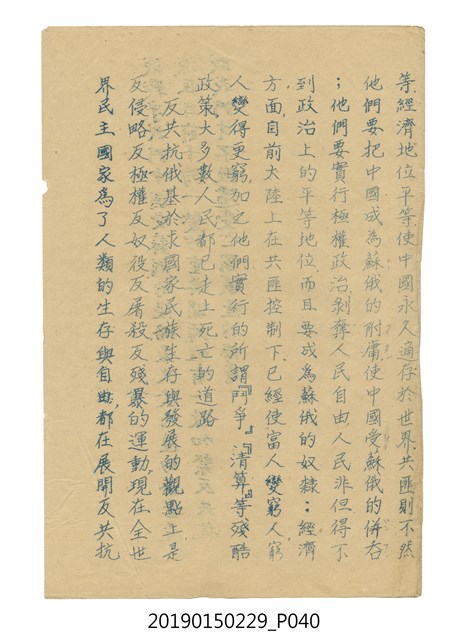 等經濟地位平等使中國永久適存於世界共匪則不然
他們要把中國成為蘇俄的附庸使中國受蘇俄的併吞
；他們要實行極權政治剝奪人民自由人民非但得不
到政治上的平等地位而且要成為蘇俄的奴隸：經濟
方面目前大陸上在共匪控制下已經使富人變窮人窮
人變得更窮加之他們實行的所謂『鬥爭』『清算』等殘酷
政策大多數人民都已走上死亡的道路
反共抗俄基於求國家民族生存與發展的觀點上是
反侵略反極權反奴役反屠殺反殘暴的運動現在全世
界民主國家為了人類的生存與自由，都在展開反共抗
20190150229_P040